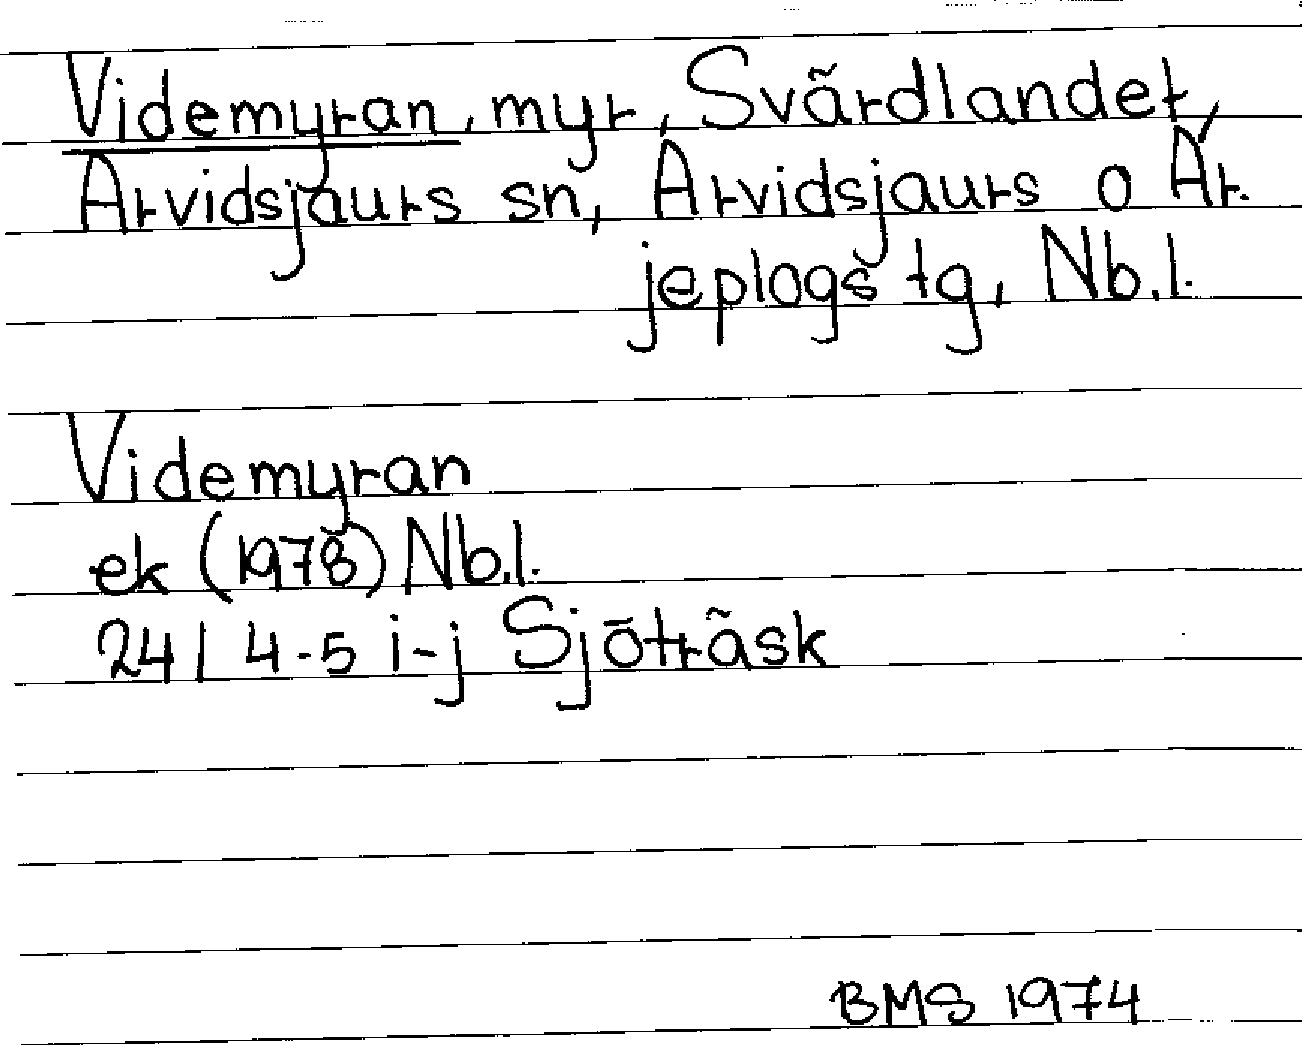 Videmyran, myr, Svärdlandet,
Arvidsjaurs sn, Arvidsjaurs o Ar-
jeplogs tg, Nb.l.
Videmyran
ek (1978) Nb.l.
24 I 4-5 i-j Sjöträsk
BMS 1974